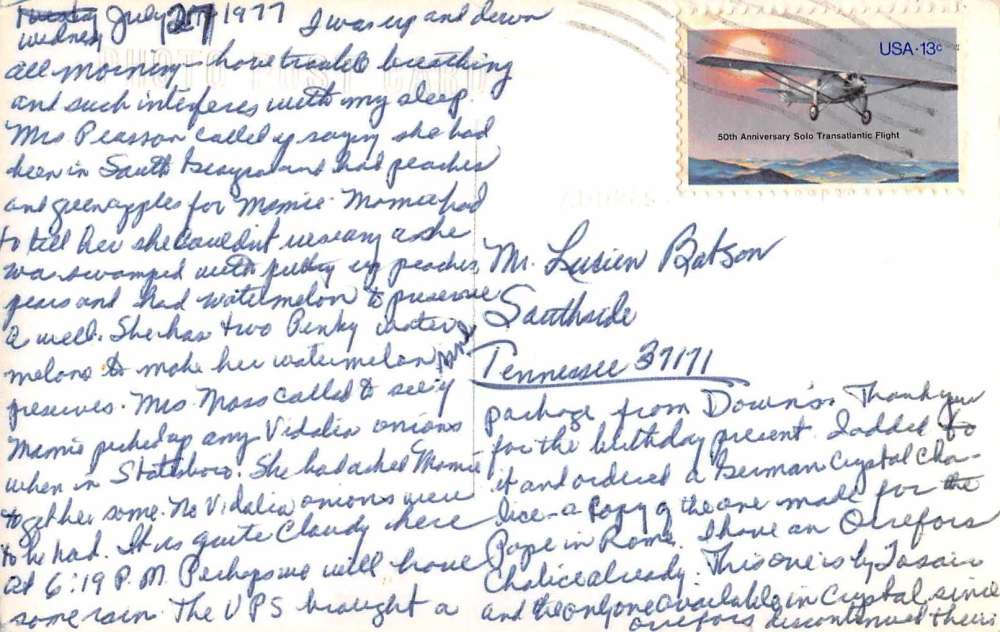 Tuesday July 27, 1977 I was up and down
Wednes
all morning - have trouble breathing
and such interferes with my sleep.
Mrs Pearson called up saying she had
been in South Georgia and had peaches
and green apples for Mamie. Mamie had
to tell her she couldn't use any as she
was swamped with putting up peaches,
pears and had watermelon to preserve
as well. She has two Pinky water
melons to make her watermelon
preserves. Mrs. Moss called to see if
Mamie picked up any Vidalia onions
when in Statesboro. She had asked Mamie
to get her some. No Vidalia onions were
to be had. It is quite Cloudy here
at 6:19 P.M. Perhaps we will have
some rain. The UPS brought a
PHOTO POST CARD
USA·13c
50th Anniversary Solo Transatlantic Flight
Mr. Lucien Batson
Southside
Tennessee 37171
package from Down's. Thank you
for the birthday present. I added to
it and ordered a German Crystal Cha-
lice - a Copy of the one made for the
Pope in Rome. I have an Orrefors
Chalice already. This one is by
and the only one available in Crystal since
Orrefors discontinued theirs